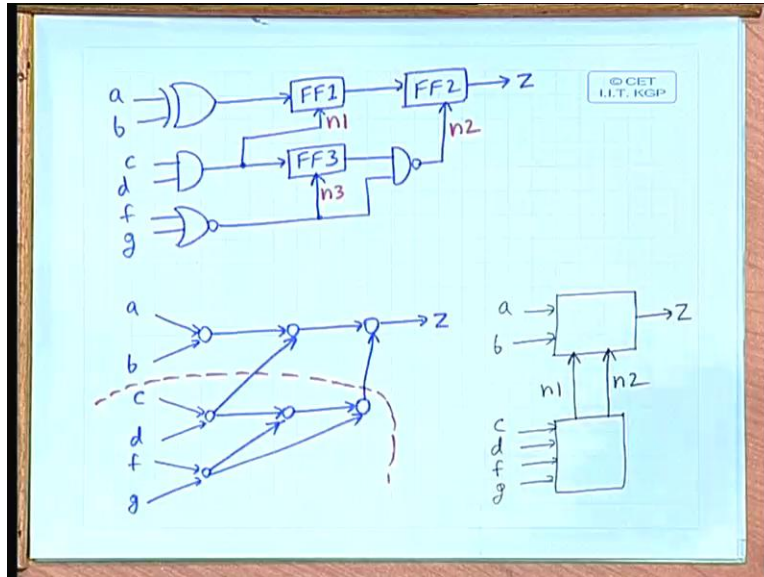 a
b
FF1
FF2
Z
© CET
I.I.T. KGP
n1
n2
c
d
FF3
n3
f
g
a
b
Z
c
d
f
g
a
b
Z
n1
n2
c
d
f
g